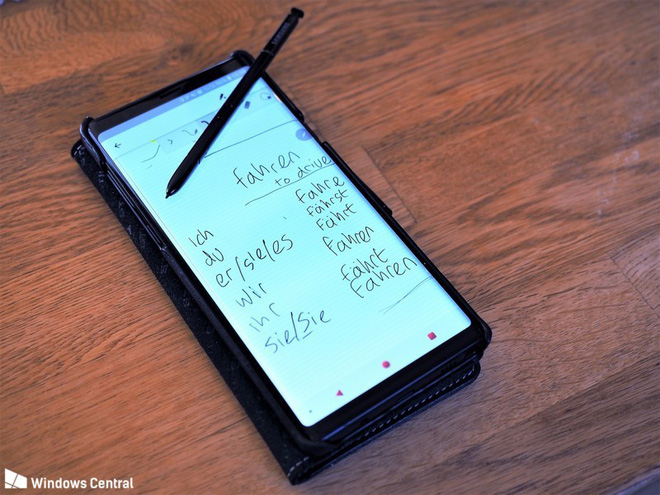 fahren
to drive
ich Fahre
du Fährst
er/sie/es Fährt
wir fahren
ihr fahrt
sie/Sie Fahren
Windows Central